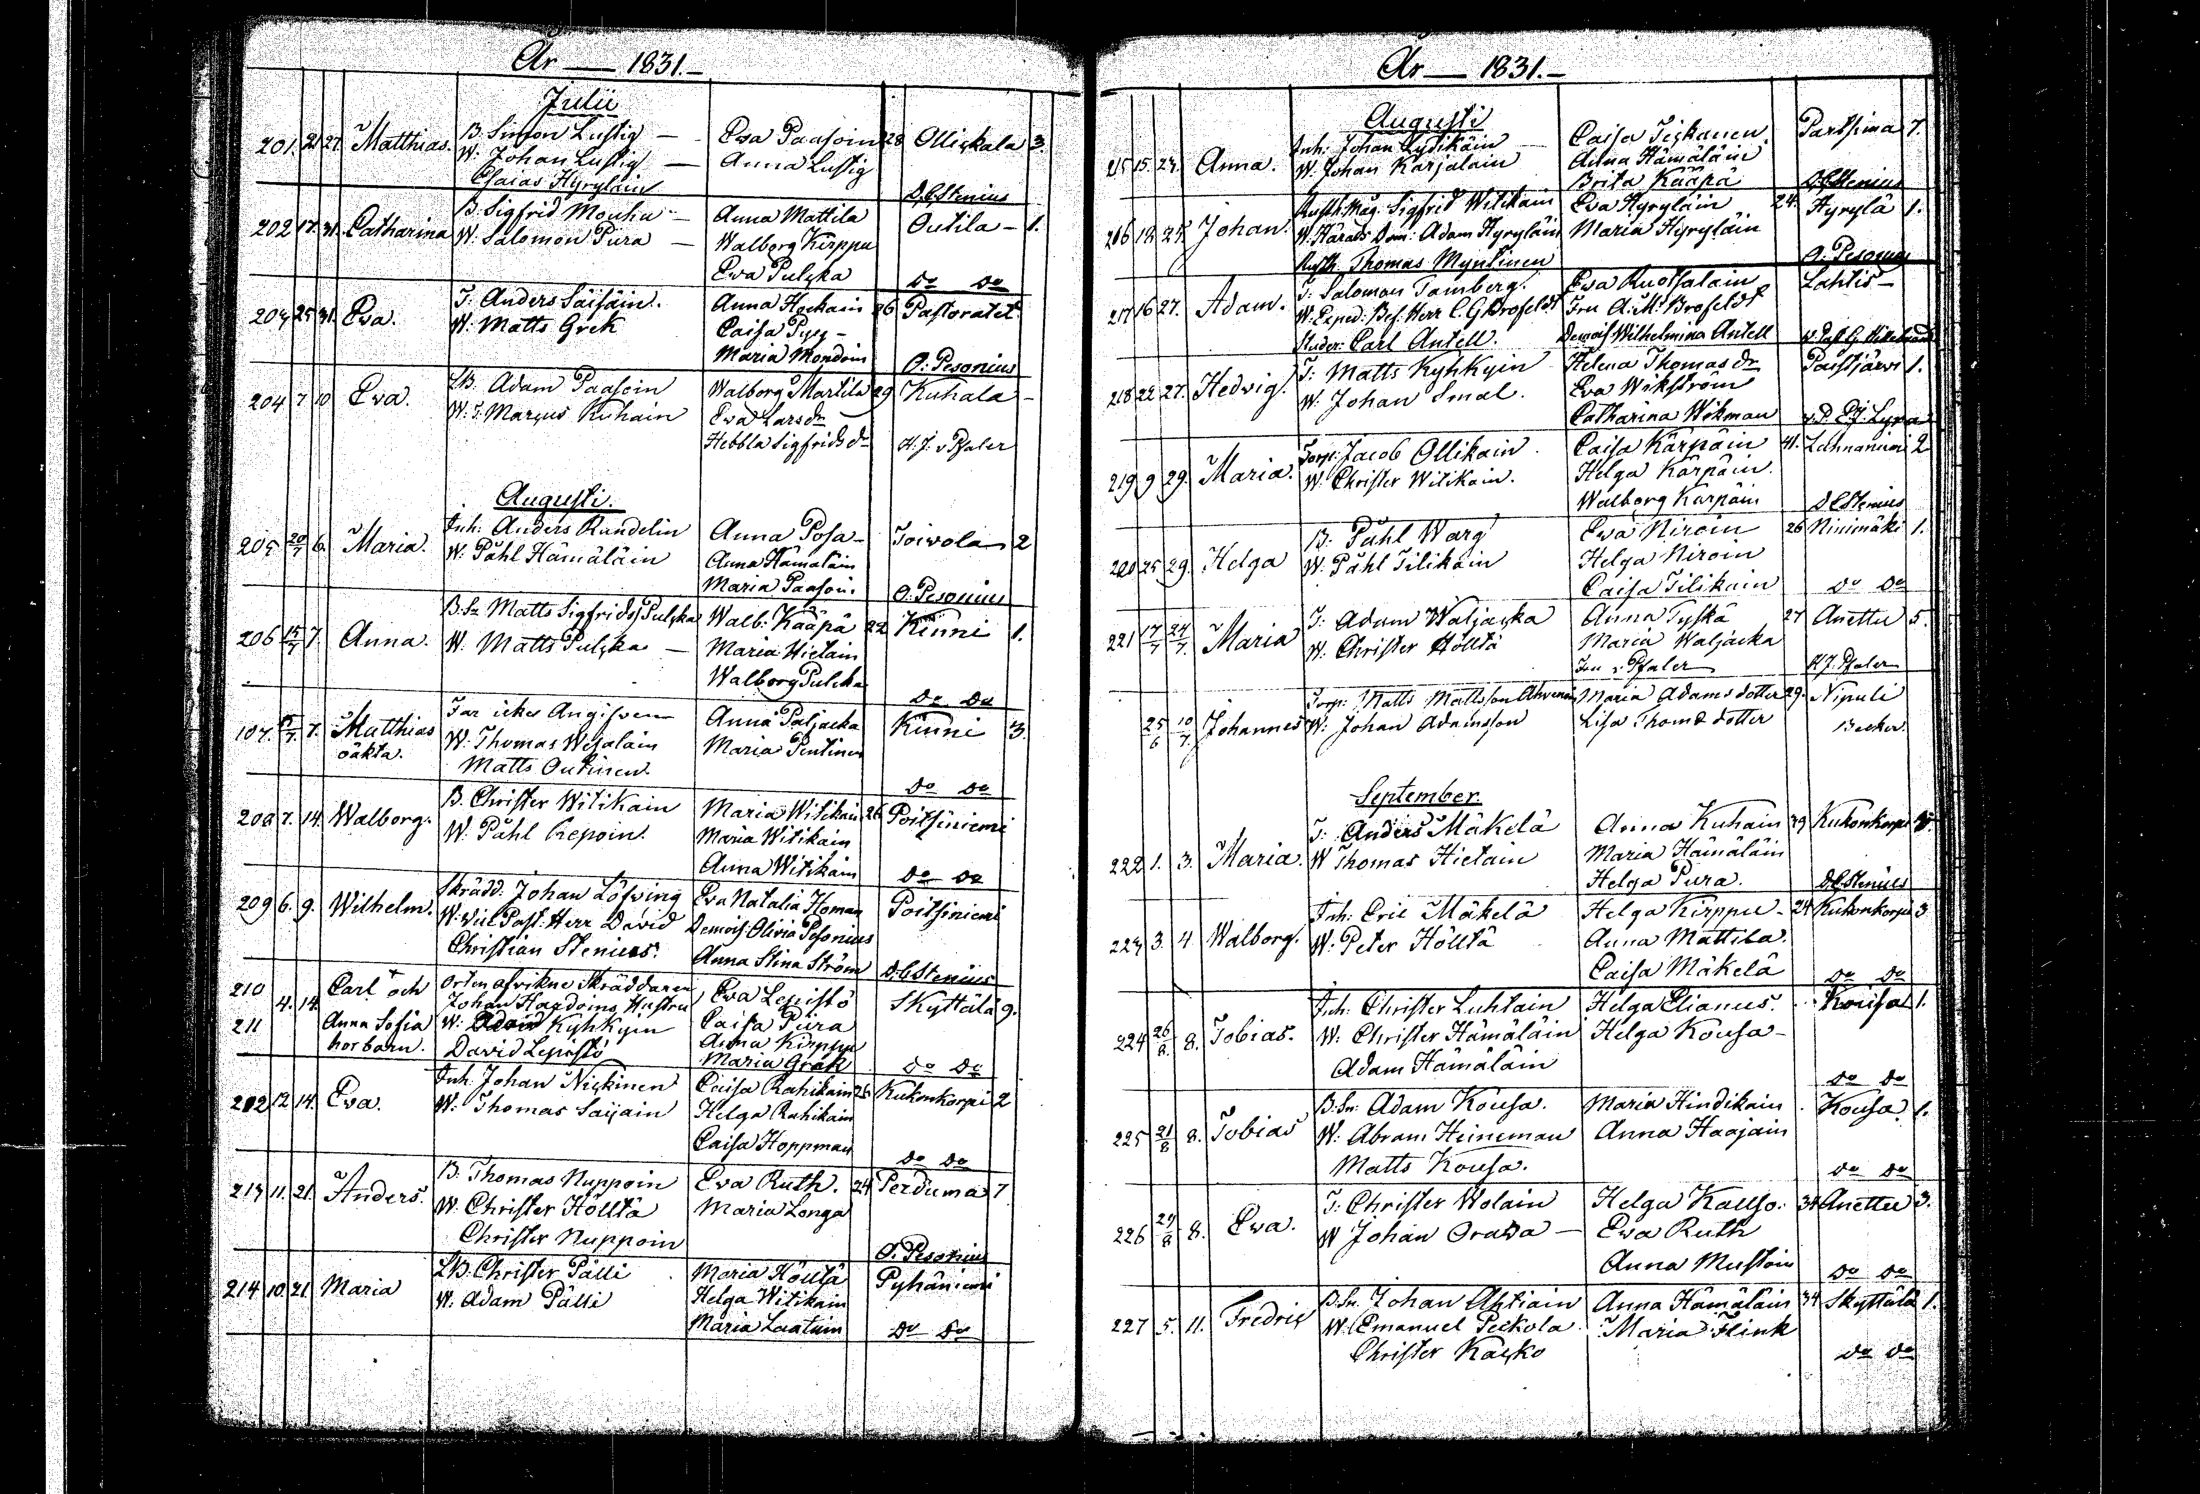 År — 1831.–
Julii
201. 21 27. Matthias. B. Simon Lustig — Eva Paasoin 28 Ollickala 3.
W. Johan Lustig — Anna Lustig
Esaias Hyryläin D. C. Stenius
202 17. 31. Catharina B. Sigfrid Mouhu – Anna Mattila Outila – 1.
W. Salomon Pura — Walborg Kirppu
Eva Pulcka Do Do
203 25 31. Eva. T. Anders Säisäin. Anna Hockain 26 Pastoratet
W. Matts Grek Caisa Pyy –
Maria Mondoin O: Pesonius
204 7 10 Eva. Adam Paasoin Walborg Martila 29 Kuhala –
W. T. Marcus Kuhain Eva Larsdr
Hebbla Sigfridsdr H. J. v Pfaler
Augusti.
205 20/7 6. Maria. Inh: Anders Randelin Anna Posa – Toivola 2
W. Påhl Hämäläin Anna Hämäläin
Maria Paasoin. O. Pesonius
206 15/7 7. Anna. B. Sn Matts Sigfridss Pulcka Walb: Kääpä 22 Kinni 1.
W. Matts Pulcka — Maria Hietain
Walborg Pulcka Do Do
107. 7. Matthias Far icke Angifven Anna Paljacka Kinni 3.
oäkta. W. Thomas Wesalain Maria Pentinen
Matts Outinen. Do Do
208 7. 14. Walborg. B. Christer Witikain Maria Witikain 26 Poitsiniemi
W. Påhl Repoin. Maria Witikain
Anna Witikain Do Do
209 6. 9. Wilhelm. Skrädd. Johan Löfving Eva Natalia Homan Poitsiniemi
W. Vice Past: Herr David Demois: Olivia Pesonius
Christian Stenius. Anna Stina Ström D. C. Stenius
210 4. 14. Carl + och Orten afvikne Skräddaren Eva Lepistö Skyttälä 9.
Johan Haqvoins Hustru
211 Anna Sofia W: Kyhkyin Caisa Pura
horbarn. David Lepistö Anna Kirppu
Maria Grak Do Do
212 12 14. Eva. Inh: Johan Nickinen Caisa Rahikain 26 Kukonkorpi 2
W. Thomas Saijain Helga Rahikain
Caisa Hoppman Do Do
213 11. 21. Anders. B. Thomas Nuppoin Eva Ruth. 24 Perduma 7
W. Christer Hölltä Maria Longa
Christer Nuppoin O. Pesonius
214 10 21 Maria Christer Pälli Maria Hölltä Pyhäniemi
W. Adam Pälli Helga Witikain
Maria Laatuin Do Do
År — 1831.–
Augusti
215 15. 24. Anna. Inh: Johan Lydikäin Caisa Tickanen Partsima 7.
W. Johan Karjalain Anna Hämäläin
Brita Kääpä D. C. Stenius
216 18. 25. Johan. Rusth. Måg: Sigfrid Witikain Eva Hyryläin 24. Hyrylä 1.
W. Härads Dom: Adam Hyryläin Maria Hyryläin
Rusth. Thomas Myntinen O. Pesonius
217 16 27. Adam. T: Salomon Tamberg. Eva Ruotsalain Lahtis –
W: Exped: Bef: Herr C. G Brofeldt Fru A: M: Brofeldt
Studer: Carl Antell. Demois Wilhelmina Antell
218 22 27. Hedvig. T: Matts Kyhkyin Helena Thomasdr Paistjärvi 1.
W. Johan Smal. Eva Wikström
Catharina Wikman v. P. Lyra
219 9 29. Maria. Torp: Jacob Ollikain. Caisa Kärpäin 41. Lahnaniemi 2
W: Christer Witikain. Helga Kärpäin.
Walborg Kärpäin D. C. Stenius
220 25 29. Helga B. Påhl Warg Eva Niroin 26 Niinimäki 1.
W. Påhl Tilikain Helga Niroin
Caisa Tilikain Do Do
221 17/7 24/7. Maria T: Adam Waljacka Anna Tyskä 27 Anettu 5.
W. Christer Hölltä Maria Waljacka
Fru v. Pfaler H. J. Pfaler
25/6 10/7 Johannes Torp: Matts Mattsson Ahvenain Maria Adams dotter 29. Nipuli
W: Johan Adamsson Lisa Thoms dotter Becker.
September.
222 1. 3. Maria. T: Anders Mäkelä Anna Kuhain 29 Kukonkorpi
W Thomas Hietain Maria Hämäläin
Helga Pura. D. C. Stenius
223 3. 4 Walborg. Inh: Eric Mäkelä Helga Kirppu – 24 Kukonkorpi 3
W: Peter Hölltä Anna Mattila.
Caisa Mäkelä Do Do
224 26/8. 8. Tobias. Inh: Christer Luhtain Helga Elianus. Kousa 1.
W: Christer Hämäläin Helga Kousa –
Adam Hämäläin Do Do
225 21/8 8. Tobias B. Sn: Adam Kousa. Maria Hindikain Kousa 1.
W. Abram Heineman Anna Haajain
Matts Kousa. Do Do
226 29/8 8. Eva. T: Christer Wolain Helga Kauso. 34 Anettu 3.
W Johan Orava — Eva Ruth
Anna Mustoin Do Do
227 5. 11. Fredric B. Sn. Johan Ahtiain Anna Hämäläin 34 Skyttälä 1.
W. Emanuel Peckola Maria Flink
Christer Käcko Do Do